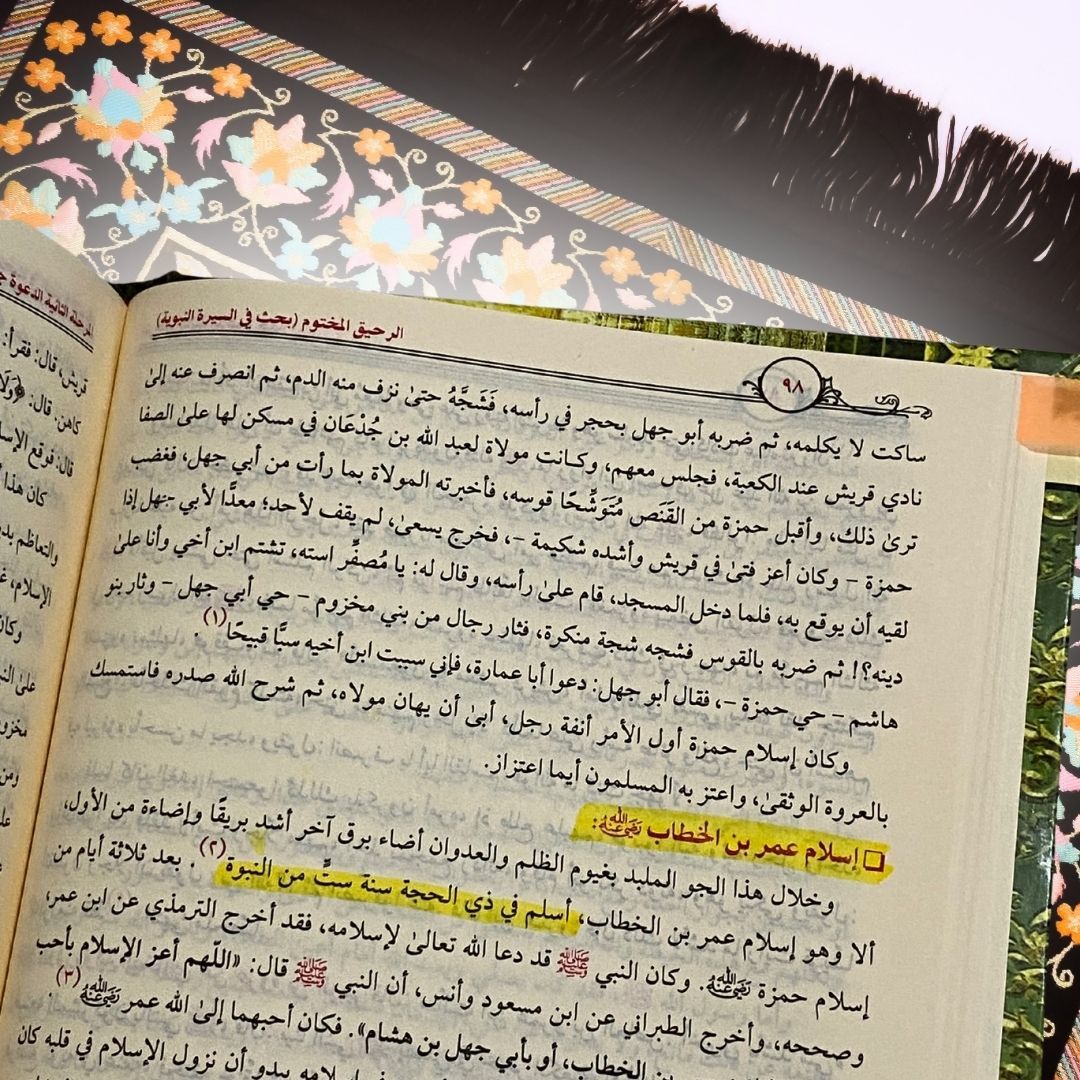 المرحلة الثانية الدعوة
قريش، قال: فقرأ:
كاهن. قال: ﴿وَلَا
كان هذا
والتعاظم
الإسلام،
وكان
الرحيق المختوم (بحث في السيرة النبوية)
٩٨
ساكت لا يكلمه، ثم ضربه أبو جهل بحجر في رأسه، فَشَجَّهُ حتىٰ نزف منه الدم، ثم انصرف عنه إلىٰ
نادي قريش عند الكعبة، فجلس معهم، وكانت مولاة لعبد الله بن جُدْعَان في مسكن لها علىٰ الصفا
ترىٰ ذلك، وأقبل حمزة من القَنَص مُتَوَشِّحًا قوسه، فأخبرته المولاة بما رأت من أبي جهل، فغضب
حمزة – وكان أعز فتىٰ في قريش وأشده شكيمة –، فخرج يسعىٰ، لم يقف لأحد؛ معدًّا لأبي جهل إذا
لقيه أن يوقع به، فلما دخل المسجد، قام علىٰ رأسه، وقال له: يا مُصفِّر استه، تشتم ابن أخي وأنا علىٰ
دينه؟! ثم ضربه بالقوس فشجه شجة منكرة، فثار رجال من بني مخزوم – حي أبي جهل – وثار بنو
هاشم – حي حمزة –، فقال أبو جهل: دعوا أبا عمارة، فإني سببت ابن أخيه سبًّا قبيحًا(١).
وكان إسلام حمزة أول الأمر أنفة رجل، أبىٰ أن يهان مولاه، ثم شرح الله صدره فاستمسك
بالعروة الوثقىٰ، واعتز به المسلمون أيما اعتزاز.
❑ إسلام عمر بن الخطاب رضي الله عنه:
وخلال هذا الجو الملبد بغيوم الظلم والعدوان أضاء برق آخر أشد بريقًا وإضاءة من الأول،
ألا وهو إسلام عمر بن الخطاب، أسلم في ذي الحجة سنة ستٍّ من النبوة(٢). بعد ثلاثة أيام من
إسلام حمزة رضي الله عنه. وكان النبي ﷺ قد دعا الله تعالىٰ لإسلامه، فقد أخرج الترمذي عن ابن عمر،
وصححه، وأخرج الطبراني عن ابن مسعود وأنس، أن النبي ﷺ قال: «اللّهم أعز الإسلام بأحب
بن الخطاب، أو بأبي جهل بن هشام». فكان أحبهما إلىٰ الله عمر رضي الله عنه(٣).
يبدو أن نزول الإسلام في قلبه كان